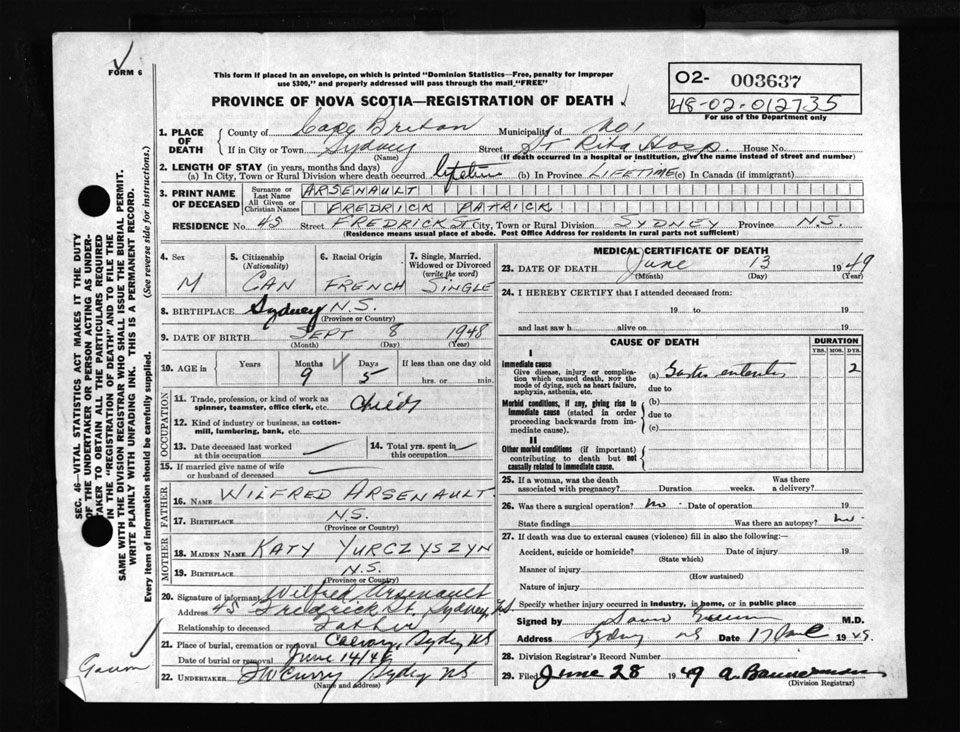 FORM 6
This form if placed in an envelope, on which is printed "Dominion Statistics—Free, penalty for improper
use $300," and properly addressed will pass through the mail "FREE"
02- 003637
48-02-012735
For use of the Department only
PROVINCE OF NOVA SCOTIA—REGISTRATION OF DEATH
1. PLACE OF DEATH
County of Cape Breton Municipality of No 1
If in City or Town Sydney Street St Rita Hosp. House No.
(Name) (If death occurred in a hospital or institution, give the name instead of street and number)
2. LENGTH OF STAY (in years, months and days)
(a) In City, Town or Rural Division where death occurred lifetime (b) In Province LIFETIME (c) In Canada (if immigrant)
3. PRINT NAME OF DECEASED
Surname or Last Name ARSENAULT
All Given or Christian Names FREDRICK PATRICK
RESIDENCE No. 45 Street FREDRICK ST City, Town or Rural Division SYDNEY Province N.S.
(Residence means usual place of abode. Post Office Address for residents in rural parts not sufficient)
4. Sex 5. Citizenship (Nationality) 6. Racial Origin 7. Single, Married, Widowed or Divorced (write the word)
M CAN FRENCH SINGLE
8. BIRTHPLACE Sydney N.S.
(Province or Country)
9. DATE OF BIRTH SEPT 8 1948
(Month) (Day) (Year)
10. AGE in Years Months Days If less than one day old
9 5 hrs. or min.
OCCUPATION
11. Trade, profession, or kind of work as spinner, teamster, office clerk, etc. Child
12. Kind of industry or business, as cotton-mill, lumbering, bank, etc.
13. Date deceased last worked at this occupation
14. Total yrs. spent in this occupation
15. If married give name of wife or husband of deceased
FATHER
16. NAME WILFRED ARSENAULT.
17. BIRTHPLACE N.S.
(Province or Country)
MOTHER
18. MAIDEN NAME KATY YURCZYSZYN
19. BIRTHPLACE N.S.
(Province or Country)
20. Signature of informant Wilfred Arsenault
Address 45 Fredrick St. Sydney, N.S.
Relationship to deceased Father
21. Place of burial, cremation or removal Calvary, Sydney NS
Date of burial or removal June 14/49
22. UNDERTAKER JW Curry Sydney NS
(Name and address)
MEDICAL CERTIFICATE OF DEATH
23. DATE OF DEATH June 13 1949
(Month) (Day) (Year)
24. I HEREBY CERTIFY that I attended deceased from:
19 to 19
and last saw h alive on 19
CAUSE OF DEATH DURATION
YRS. MOS. DYS.
I
Immediate cause
Give disease, injury or complication which caused death, NOT the mode of dying, such as heart failure, asphyxia, asthenia, etc.
(a) Gastro enteritis 2
due to
Morbid conditions, if any, giving rise to immediate cause (stated in order proceeding backwards from immediate cause).
(b)
due to
(c)
II
Other morbid conditions (if important) contributing to death but not causally related to immediate cause.
25. If a woman, was the death associated with pregnancy? Duration weeks. Was there a delivery?
26. Was there a surgical operation? no Date of operation 19
State findings Was there an autopsy? no
27. If death was due to external causes (violence) fill in also the following:—
Accident, suicide or homicide? Date of injury 19
(State which)
Manner of injury
(How sustained)
Nature of injury
Specify whether injury occurred in industry, in home, or in public place
Signed by M.D.
Address Sydney NS Date 17 June 1949.
28. Division Registrar's Record Number
29. Filed June 28 1949 A. Bannerman
(Division Registrar)
SEC. 46—VITAL STATISTICS ACT MAKES IT THE DUTY
OF THE UNDERTAKER OR PERSON ACTING AS UNDER-
TAKER TO OBTAIN ALL THE PARTICULARS REQUIRED
IN THE "REGISTRATION OF DEATH" AND TO FILE THE
SAME WITH THE DIVISION REGISTRAR WHO SHALL ISSUE THE BURIAL PERMIT.
WRITE PLAINLY WITH UNFADING INK. THIS IS A PERMANENT RECORD.
Every item of information should be carefully supplied. (See reverse side for instructions.)